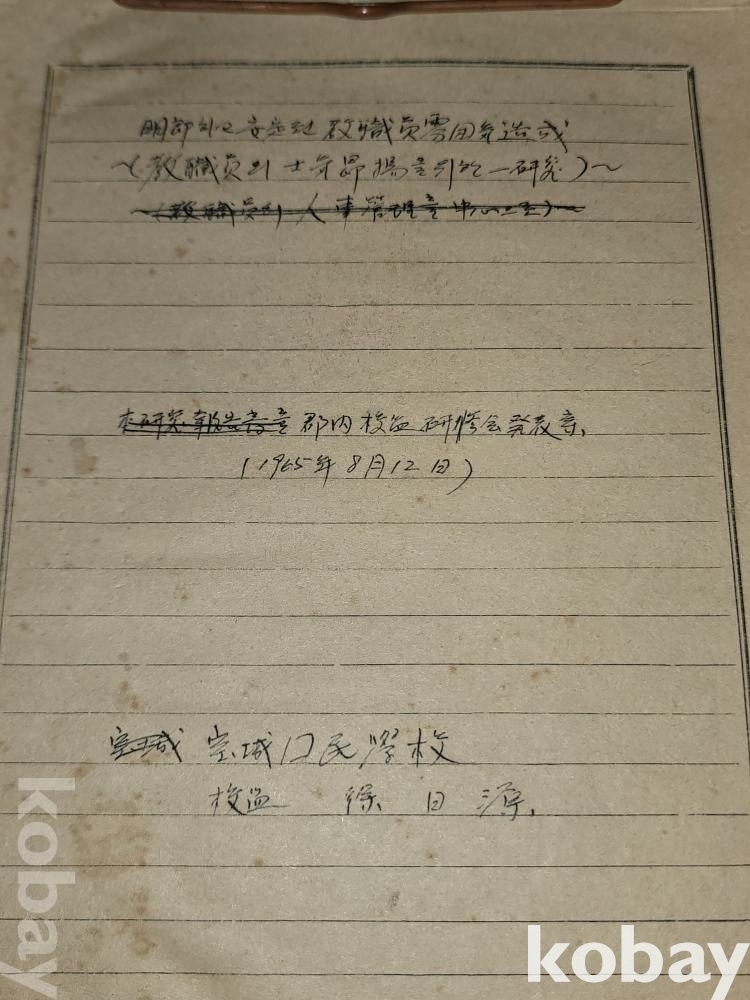 明朗하고 安定된 敎職員雰囲気造成
~(敎職員의 士気昻揚을 위한 一研究)~
~(敎職員의 人事管理을 中心으로)~
本研究報告書을 郡内 校監 研修会 発表文.
(1965年 8月 12日)
宝城 宝城国民学校
校監 徐日源.
kobay
kobay